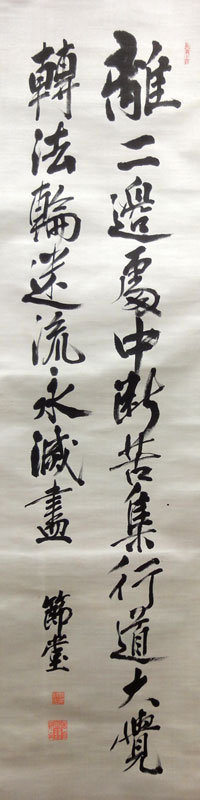 離二邊處中断苦集行道大覺
轉法輪迷流永滅盡
節堂